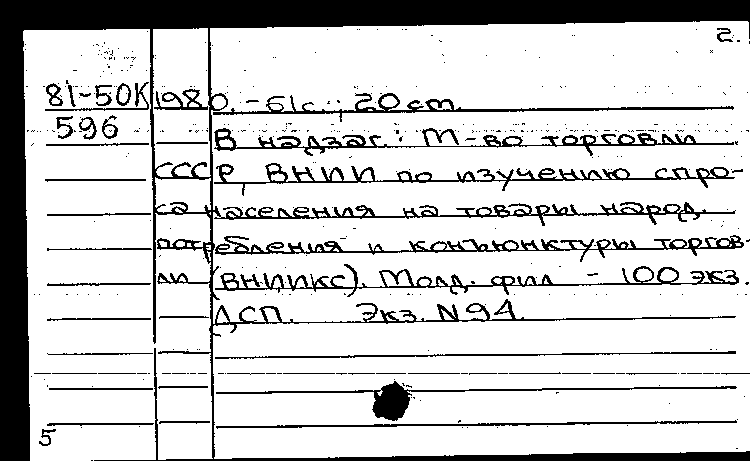 2.
81-50К 1980. - 61с.; 20 cm.
596 В надзаг.: М-во торговли
СССР, ВНИИ по изучению спро-
са населения на товары народ.
потребления и конъюнктуры торгов-
ли (ВНИИКС). Молд. фил - 100 экз.
ДСП. Экз. N94.
5